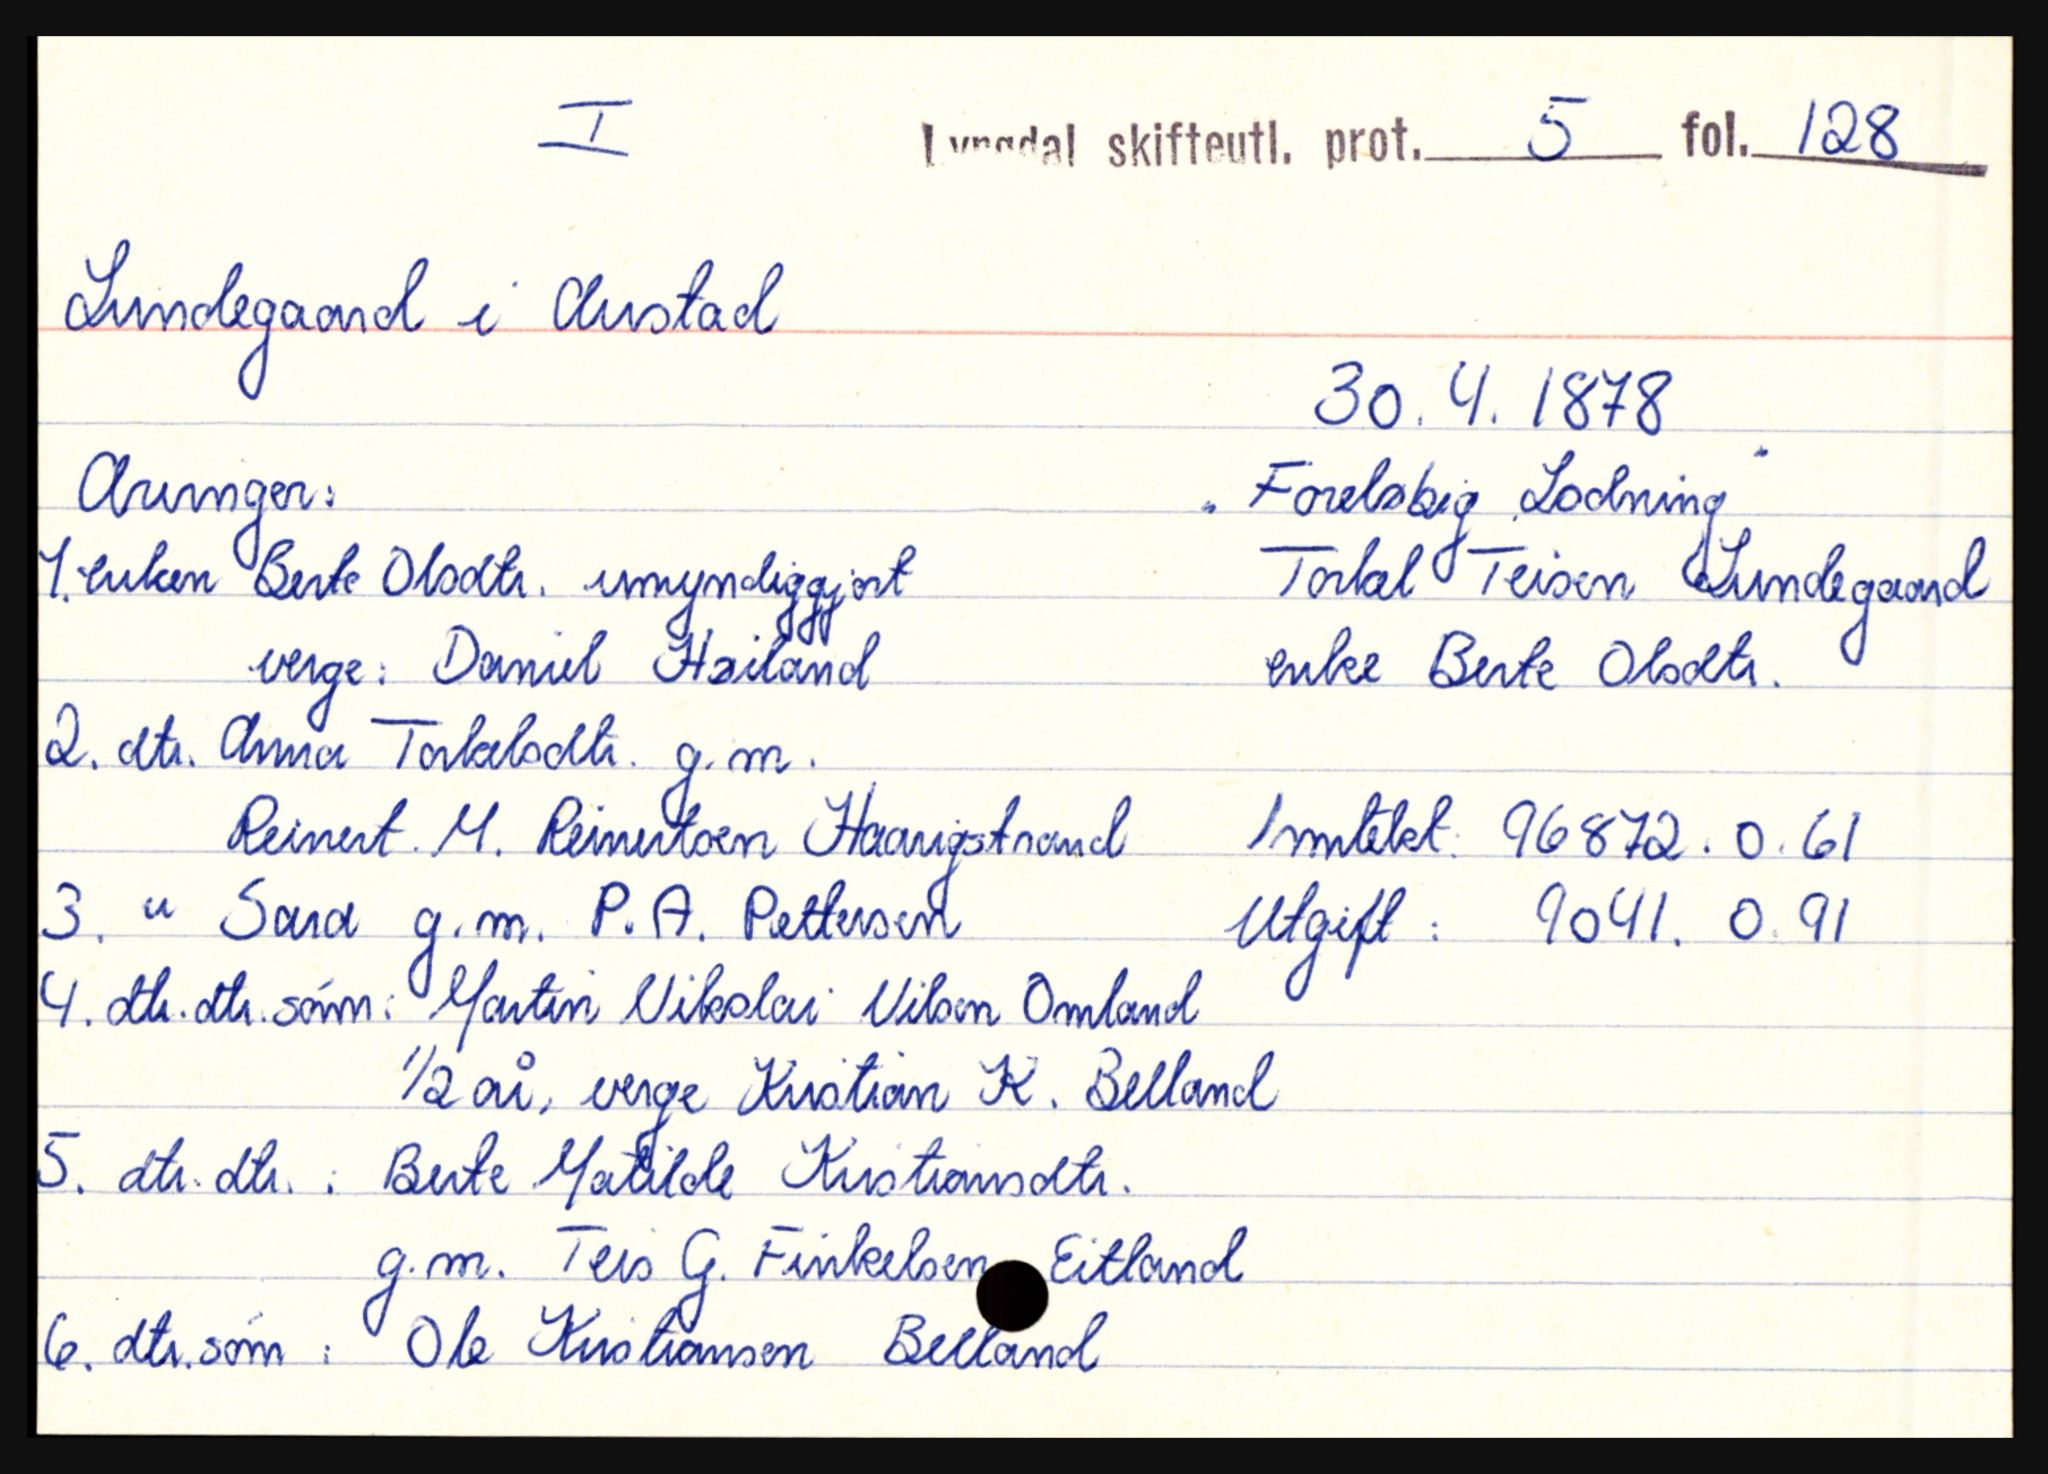 I
Lyngdal skifteutl. prot. 5 fol. 128
Lundegaard i Austad
30.4.1878
Arvinger:
"Foreløbig Lodning"
1. enken Berte Olsdtr. umyndiggjort
Torkel Teisen Lundegaard
verge: Daniel Høiland
enke Berte Olsdtr.
2. dtr. Anna Torkelsdtr. g.m.
Reinert M. Reinertsen Haarigstrand
Inntekt: 96872.0.61
3. " Sara g.m. P.A. Pettersen
Utgift: 9041.0.91
4. dtr.dtr.sønn: Martin Nikolai Nilsen Omland
1/2 år, verge Kristian K. Belland
5. dtr.dtr.: Berte Matilde Kristiansdtr.
g.m. Teis G. Finkelsen Eitland
6. dtr.sønn: Ole Kristiansen Belland